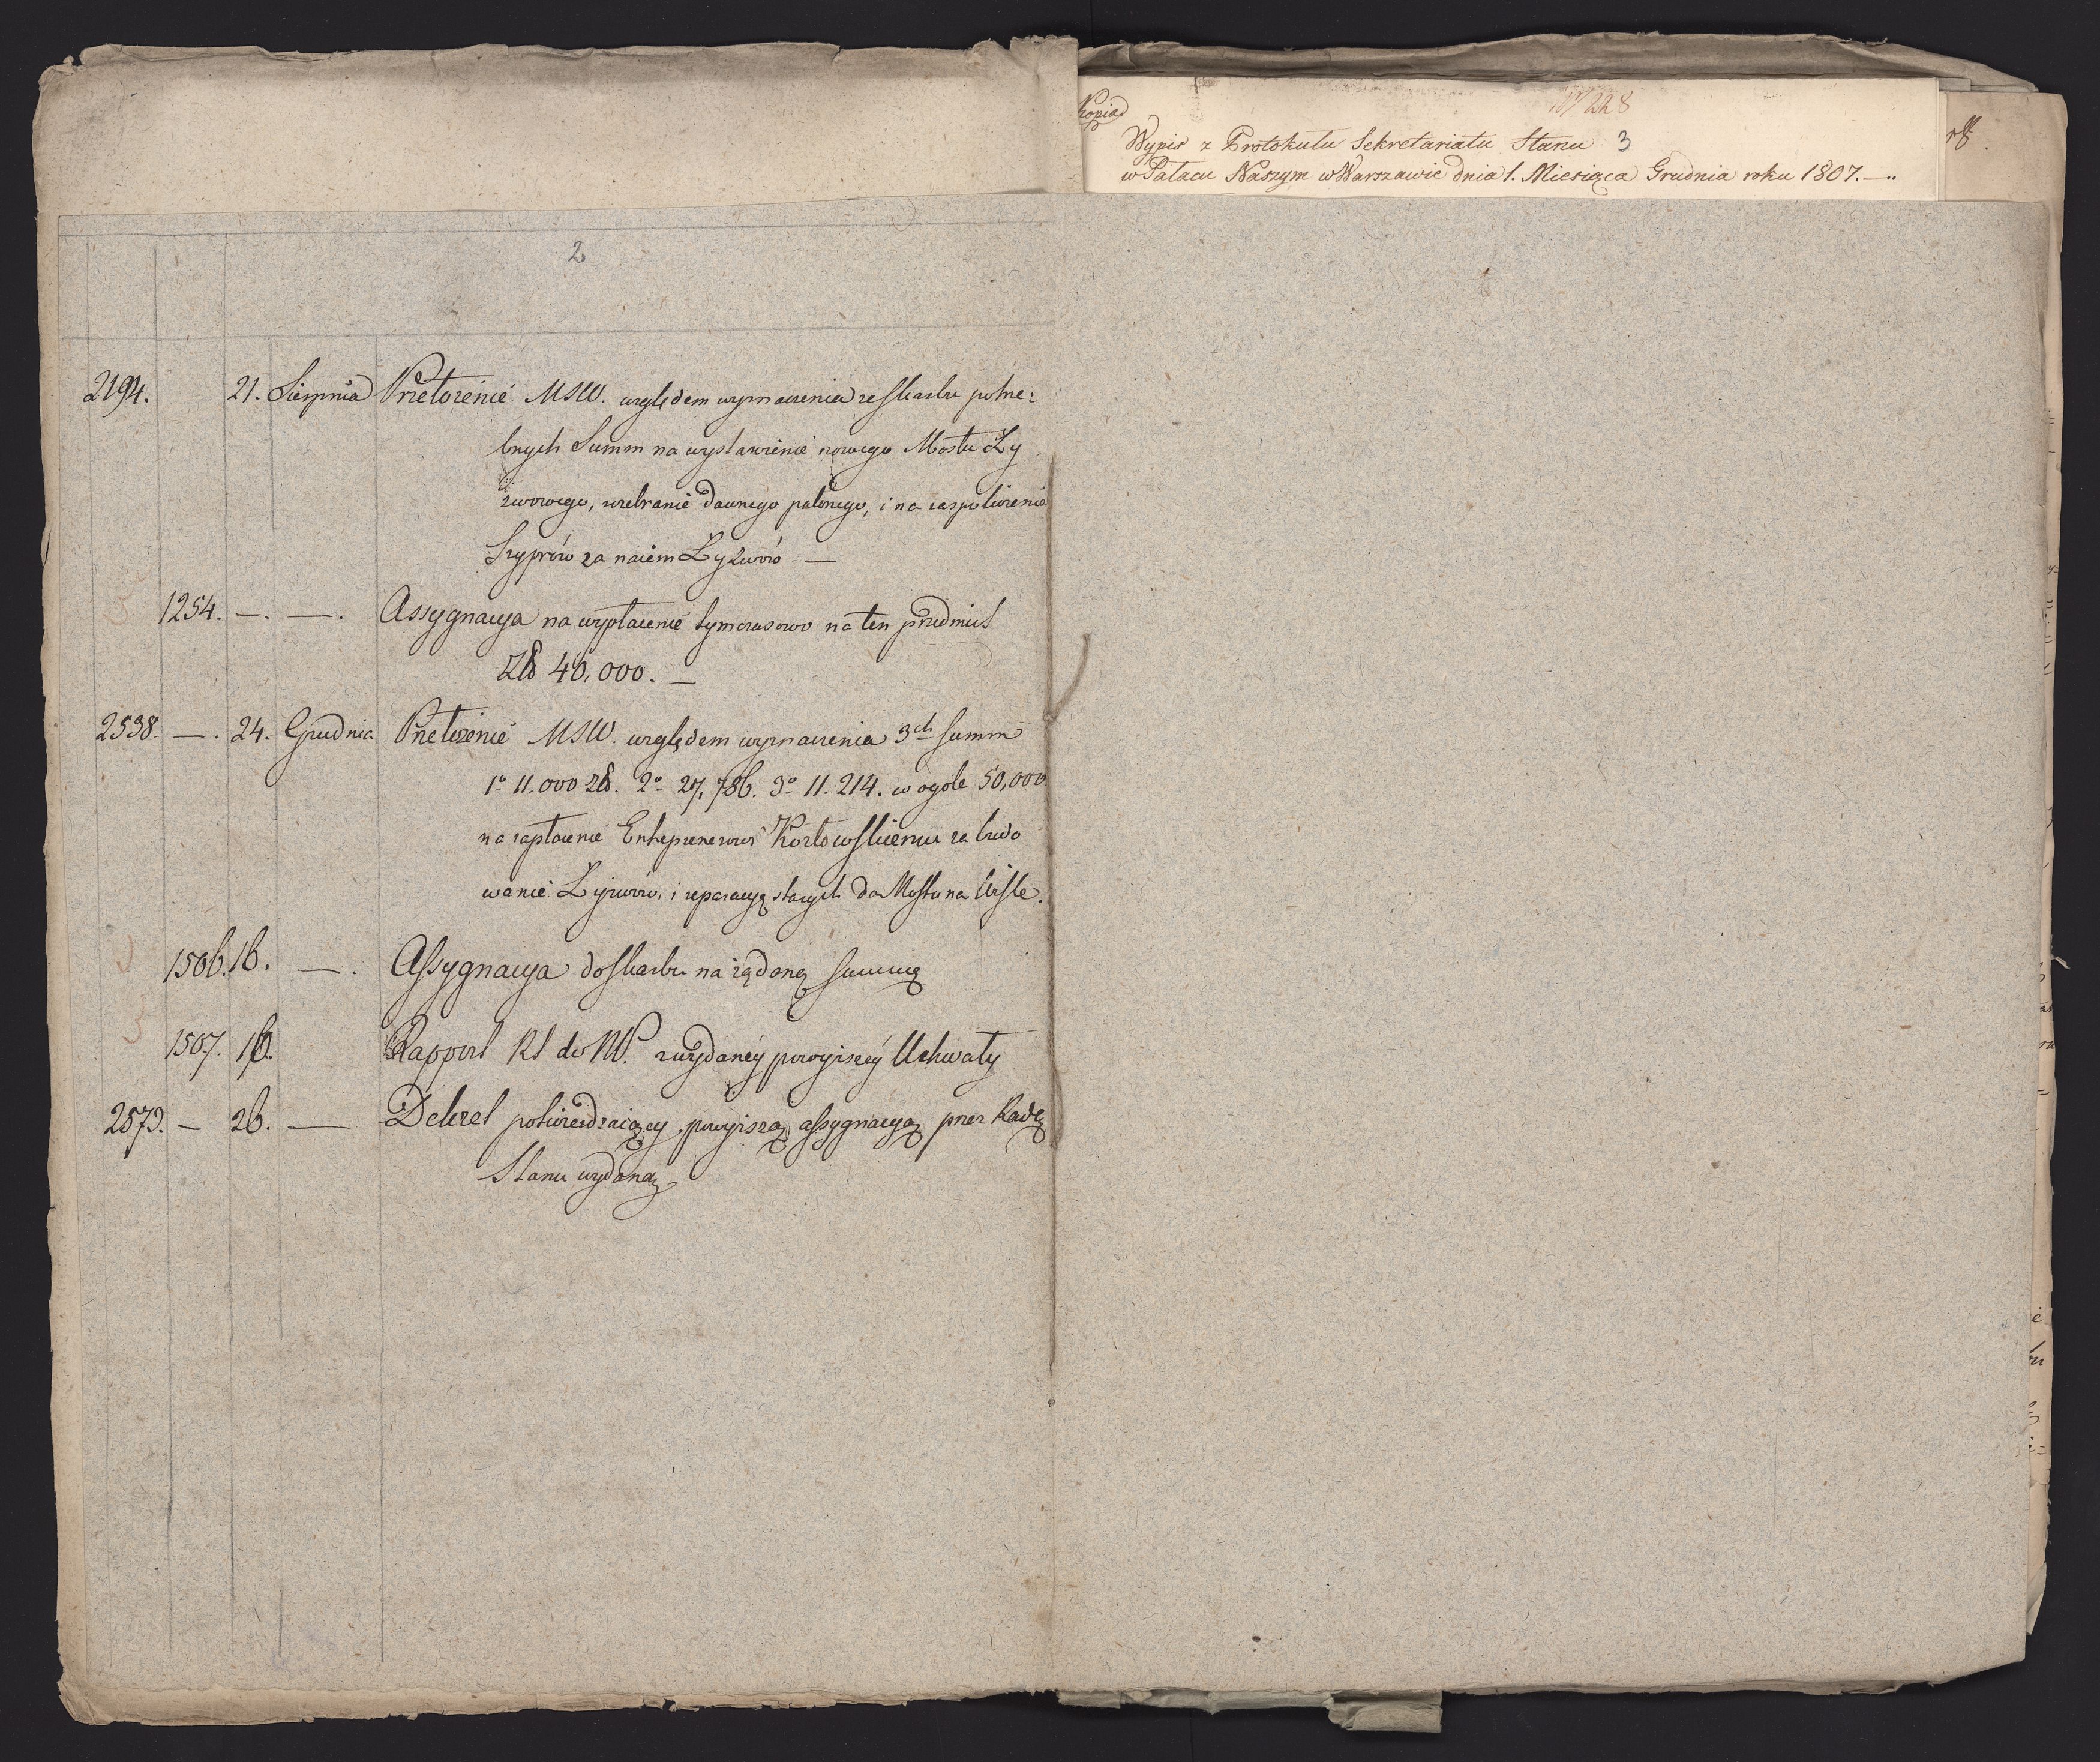 2
2194. 21. Sierpnia Przełożenie MSW. względem wyznaczenia ze skarbu potrze=
bnych Summ na wystawienie nowego Mostu Ły
żwowego, rozebranie dawnego palowego, i na zaspokoienie
Szyprów za naiem Łyżwów —
1254. —. —. Assygnacya na wypłacenie tymczasowo na ten przedmiot
Zł 40,000. —
2538. —. 24. Grudnia Przełożenie MSW. względem wyznaczenia 3ch summ
1o 11.000 zł. 2o 27,786. 3o 11.214. w ogole 50,000
na zapłacenie Entreprenerowi Kozłowskiemu za budo
wanie Łyżwów, i reparacyą starych do Mostu na Wiśle.
1506. 16. —. Assygnacya do skarbu na żądaną summę
1507. 16. Rapport RS do NP. z wydaney powyższey Uchwały
2573. — 26. — Dekret potwierdzaiący powyższą assygnacyą przez Radę
Stanu wydaną
Kopia
228
Wypis z Protokułu Sekretariatu Stanu 3
w Pałacu Naszym w Warszawie dnia 1. Miesiąca Grudnia roku 1807. —